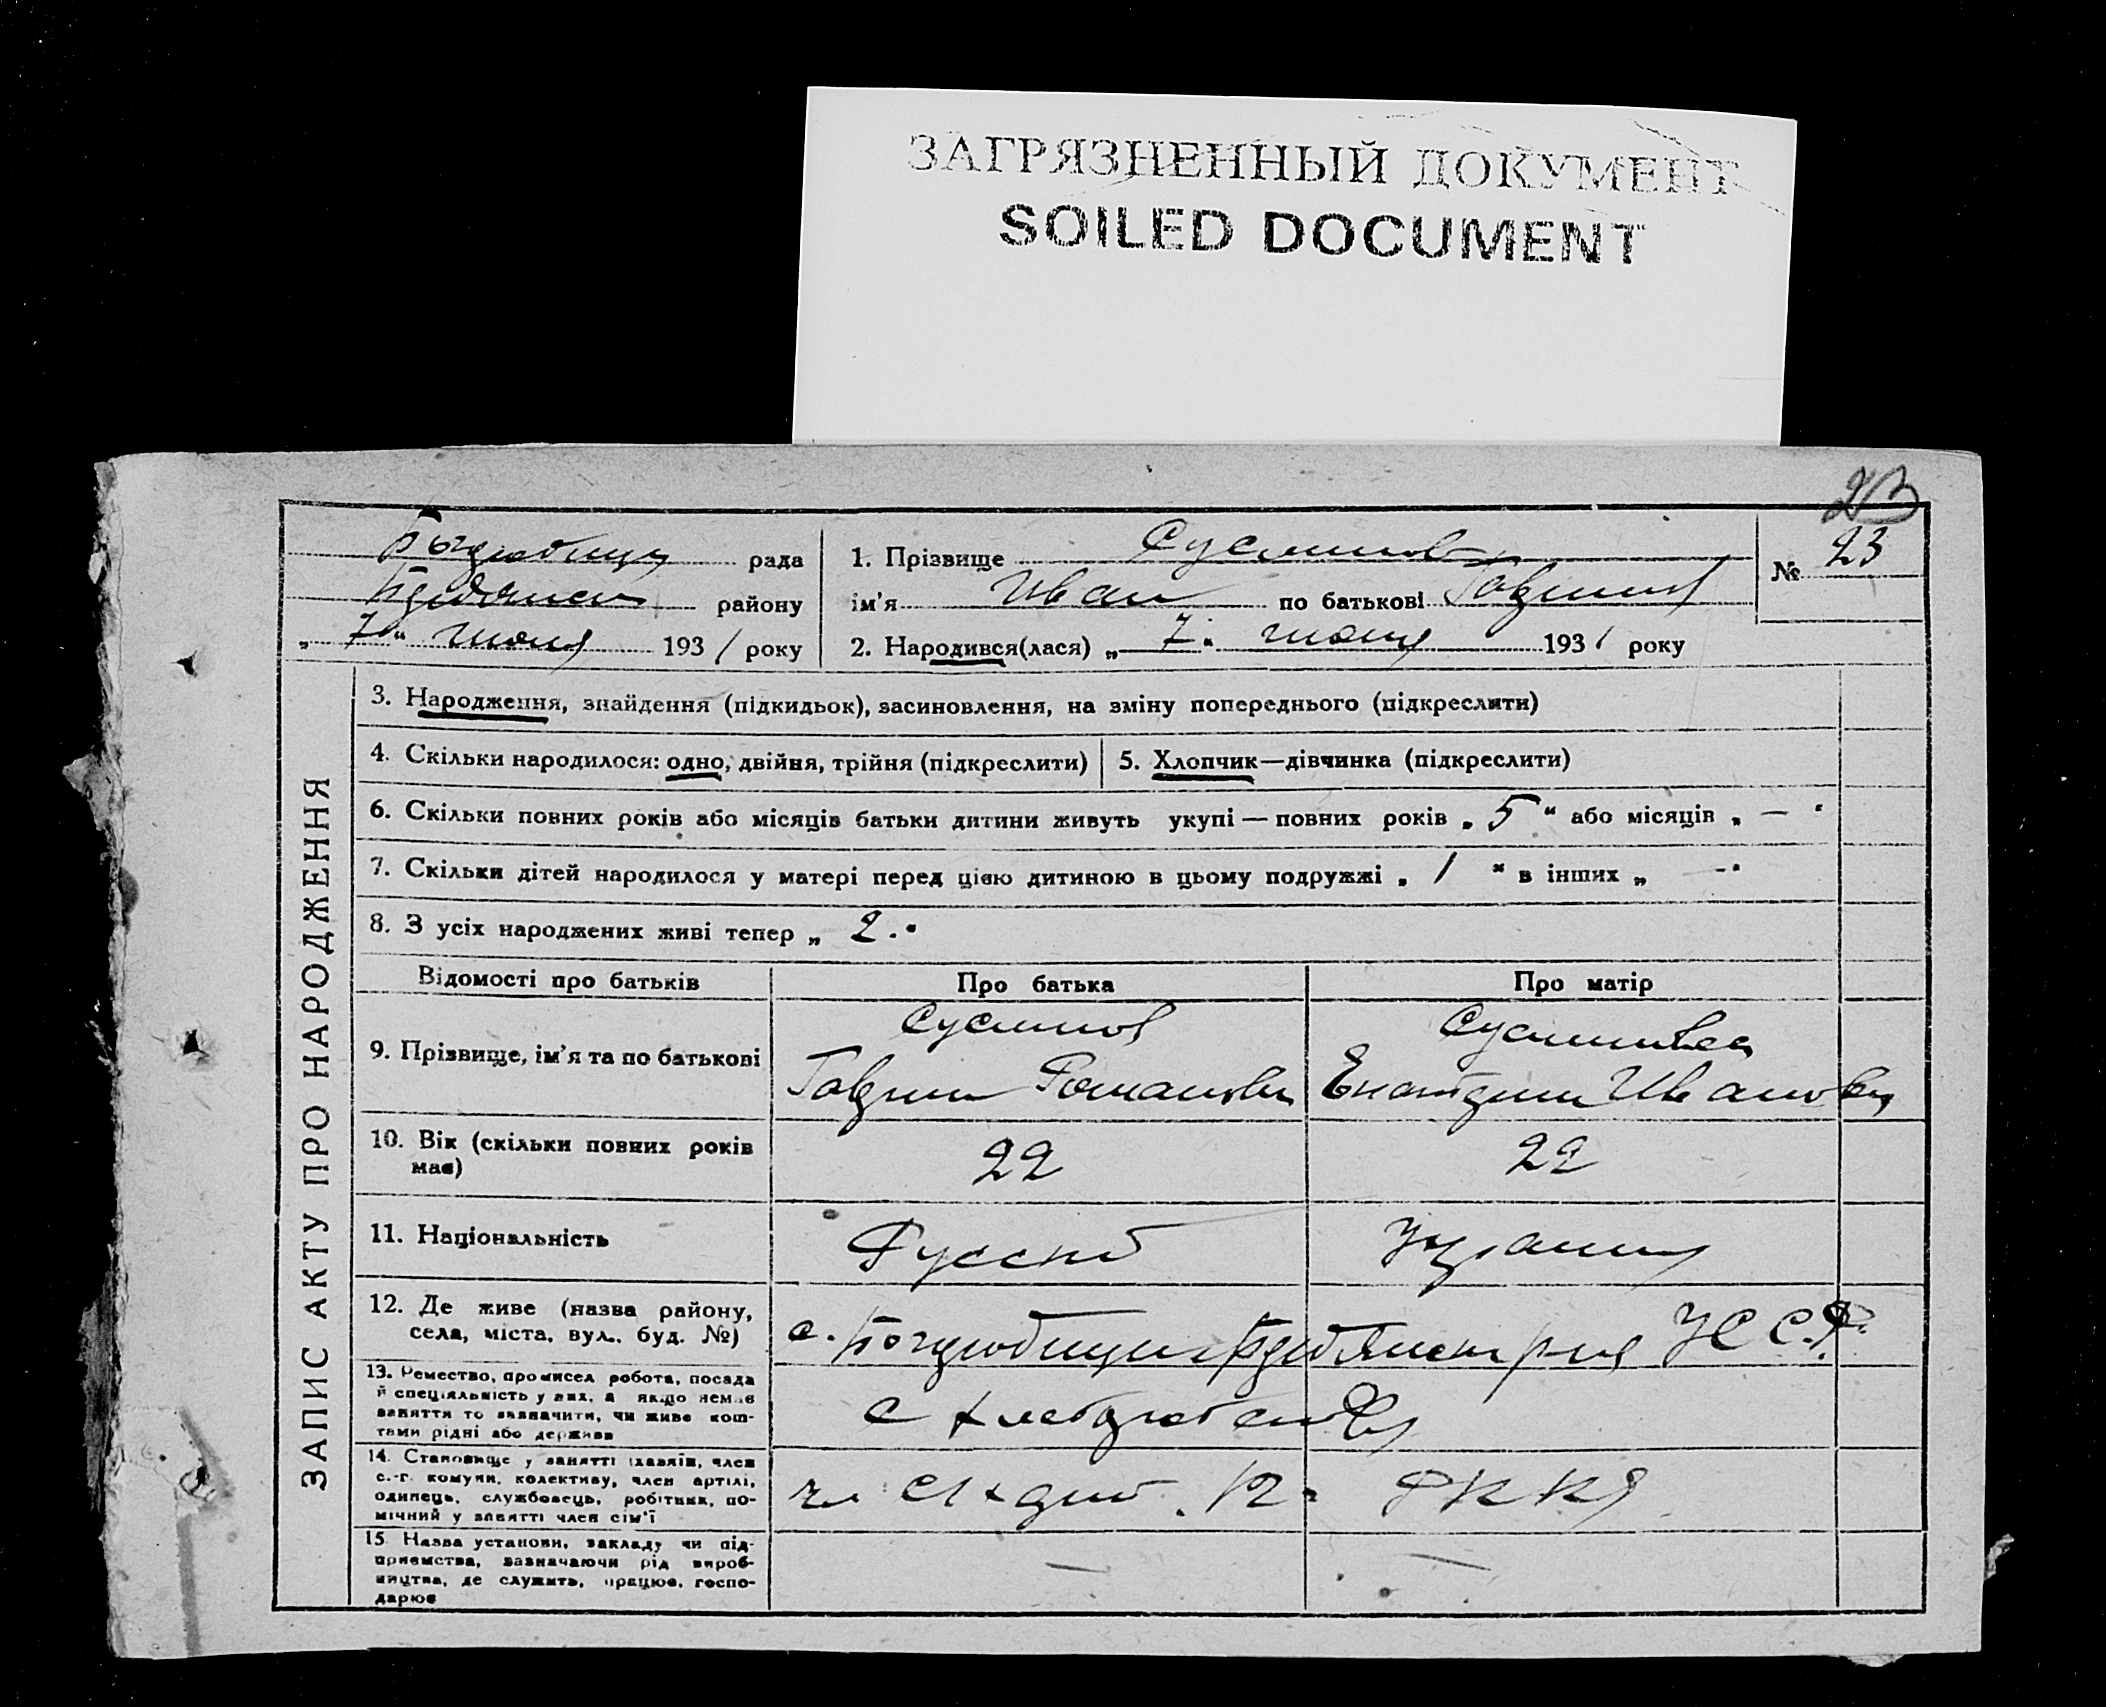 ЗАГРЯЗНЕННЫЙ ДОКУМЕНТ
SOILED DOCUMENT
23
рада
району
„ 7 “ июня 1931 року
1. Прізвище Суслинов
ім'я Иван по батькові
2. Народився(лася) „ 7 “ июня 1931 року
№ 23
ЗАПИС АКТУ ПРО НАРОДЖЕННЯ
3. Народження, знайдення (підкидьок), засиновлення, на зміну попереднього (підкреслити)
4. Скільки народилося: одно, двійня, трійня (підкреслити)
5. Хлопчик—дівчинка (підкреслити)
6. Скільки повних років або місяців батьки дитини живуть укупі — повних років „ 5 “ або місяців „ — “
7. Скільки дітей народилося у матері перед цією дитиною в цьому подружжі „ 1 “ в інших „ — “
8. З усіх народжених живі тепер „ 2 “
Відомості про батьків
Про батька
Про матір
9. Прізвище, ім'я та по батькові
Суслинов
Романови
Ивановна
10. Вік (скільки повних років
має)
22
22
11. Національність
Русский
12. Де живе (назва району,
села, міста, вул., буд. №)
с. УССР
13. Ремество, промисел робота, посада
й спеціяльність у них, а якщо немає
заняття то зазначити, чи живе кош-
тами рідні або держави
14. Становище у занятті (хазяїн, член
с.-г. комуни, колективу, член артілі,
одинець, службовець, робітник, по-
мічний у занятті член сім'ї
РККА
15. Назва установи, закладу чи під-
приємства, зазначаючи рід вироб-
ництва, де служить, працює, госпо-
дарює
—
—